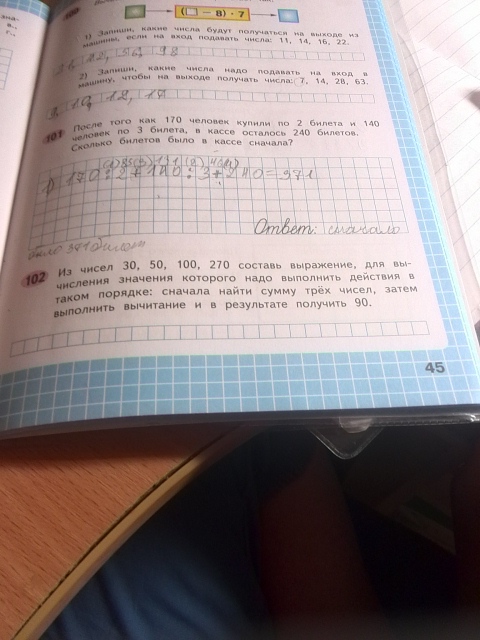 100
(□ – 8) · 7
1) Запиши, какие числа будут получаться на выходе из
машины, если на вход подавать числа: 11, 14, 16, 22.
98
2) Запиши, какие числа надо подавать на вход в
машину, чтобы на выходе получать числа: 7, 14, 28, 63.
9, 10, 12, 17
101 После того как 170 человек купили по 2 билета и 140
человек по 3 билета, в кассе осталось 240 билетов.
Сколько билетов было в кассе сначала?
170:2+140:3+240=371
Ответ: сначало
было 371 билет
102 Из чисел 30, 50, 100, 270 составь выражение, для вы-
числения значения которого надо выполнить действия в
таком порядке: сначала найти сумму трёх чисел, затем
выполнить вычитание и в результате получить 90.
45